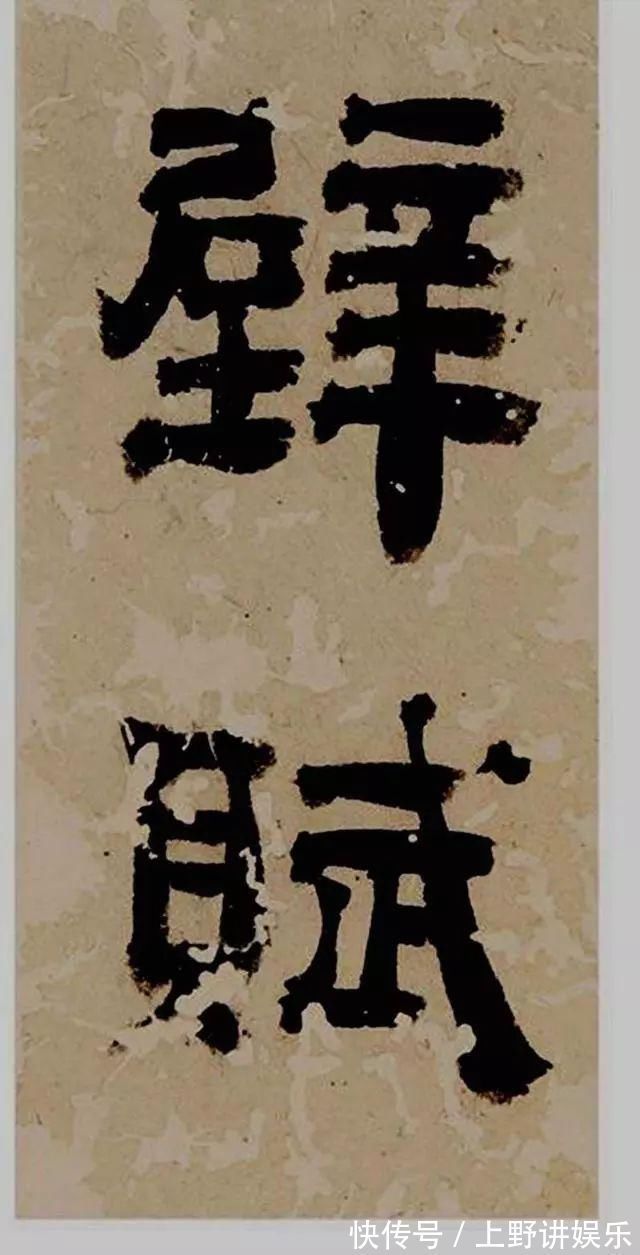 壁
賦
快传号 / 上野讲娱乐